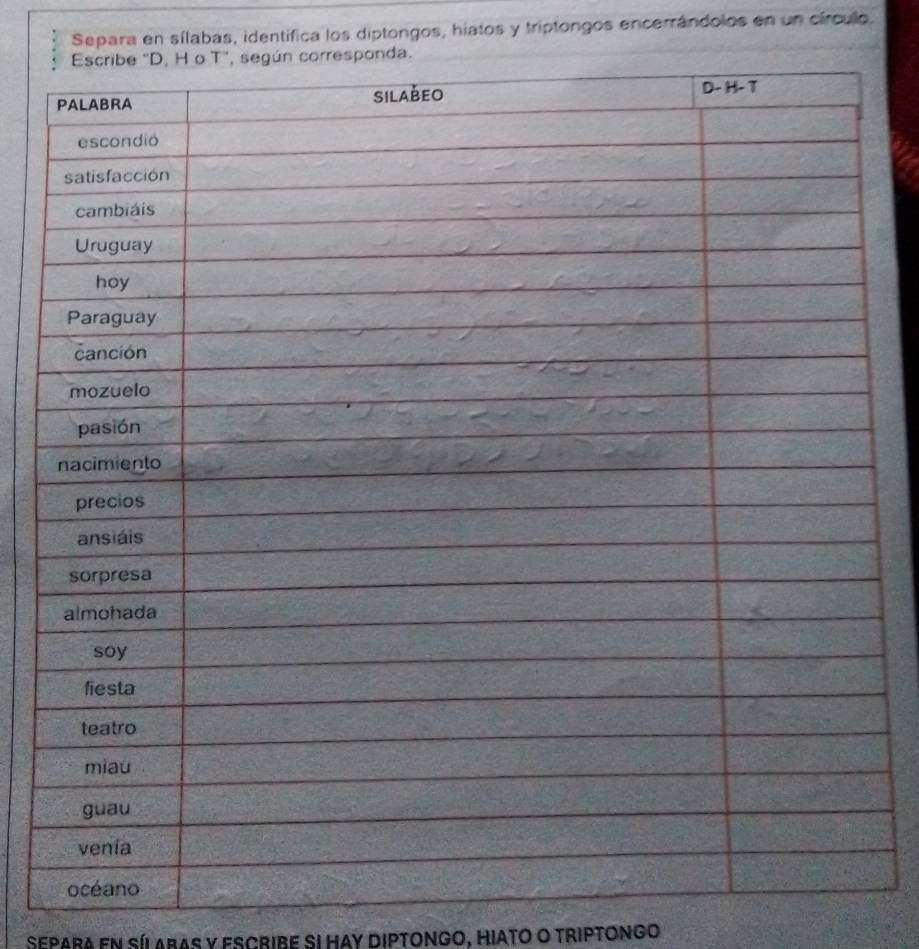 Separa en sílabas, identifica los diptongos, hiatos y triptongos encerrándolos en un círculo.
Escribe "D, H o T", según corresponda.
PALABRA SILABEO D- H- T
escondió
satisfacción
cambiáis
Uruguay
hoy
Paraguay
canción
mozuelo
pasión
nacimiento
precios
ansiáis
sorpresa
almohada
soy
fiesta
teatro
miau
guau
venía
océano
SEPARA EN SÍLABAS Y ESCRIBE SI HAY DIPTONGO, HIATO O TRIPTONGO